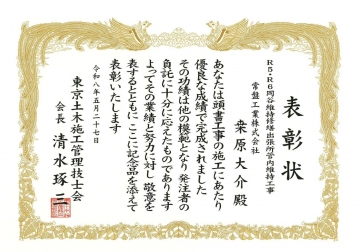 表彰状
R5・R6岡谷維持修繕出張所管内維持工事
常盤工業株式会社
桒原大介殿
あなたは頭書工事の施工にあたり
優良な成績で完成されました
その功績は他の模範となり発注者の
負託に十分に応えたものであります
よってその業績と努力に対し敬意を
表するとともにここに記念品を添えて
表彰いたします
令和八年五月二十七日
東京土木施工管理技士会
会長 清水琢三